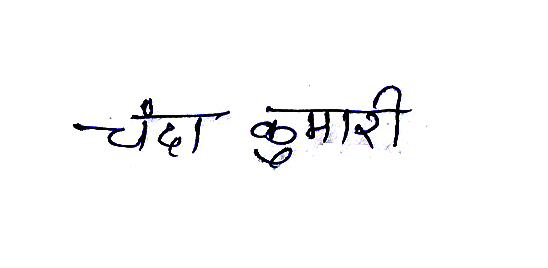 चंदा कुमारी